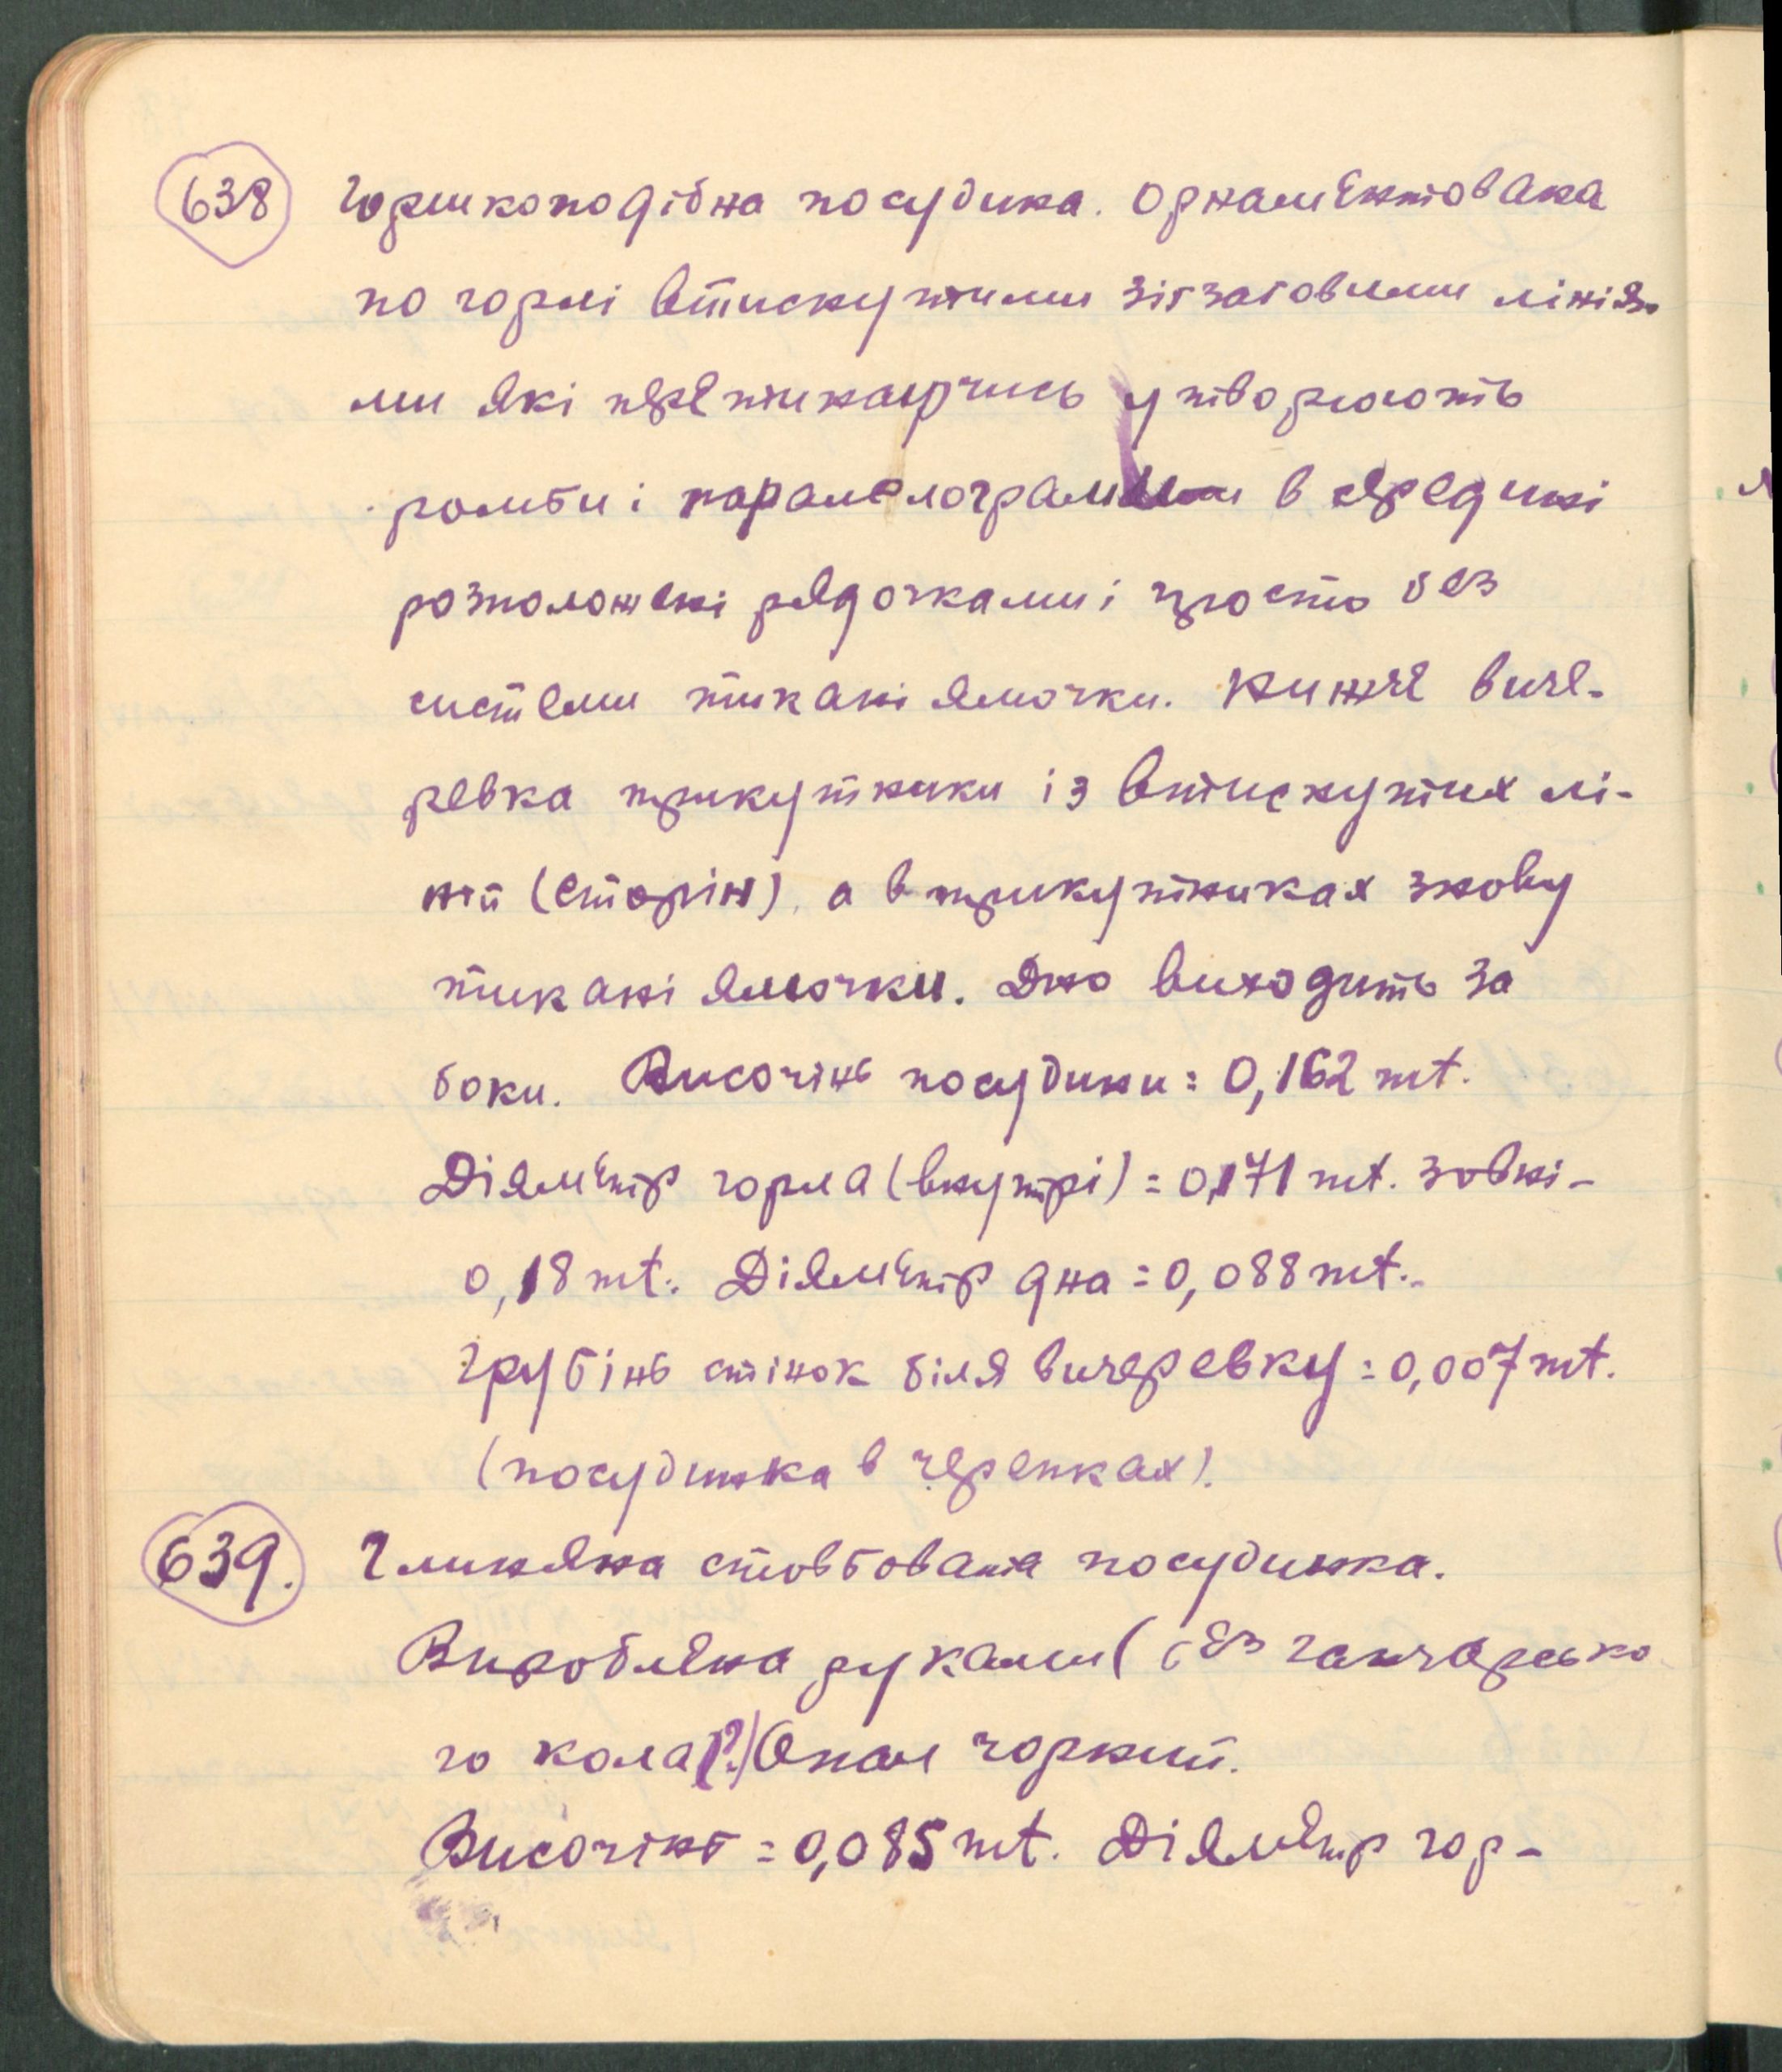 638 Горшкоподібна посудина. Орнаментована
по горлі втиснутими зігзаговими лінія-
ми які перетинаючись утворюють
ромби і паралелограми в середині
розположені рядочками і просто без
системи тикані ямочки. Нижче виче-
ревка трикутники із втиснутих лі-
ній (сторін), а в трикутниках знову
тикані ямочки. Дно виходить за
боки. Височінь посудини = 0,162 mt.
Діяметр горла (внутрі) = 0,171 mt. зовні-
0,18 mt. Діяметр дна = 0,088 mt.
Грубінь стінок біля вичеревку = 0,007 mt.
(посудинка в черепках).
639. Глиняна стовбована посудинка.
Вироблена руками (без ганчарсько
го кола(?) Опал чорний.
Височінь = 0,085 mt. Діяметр гор-